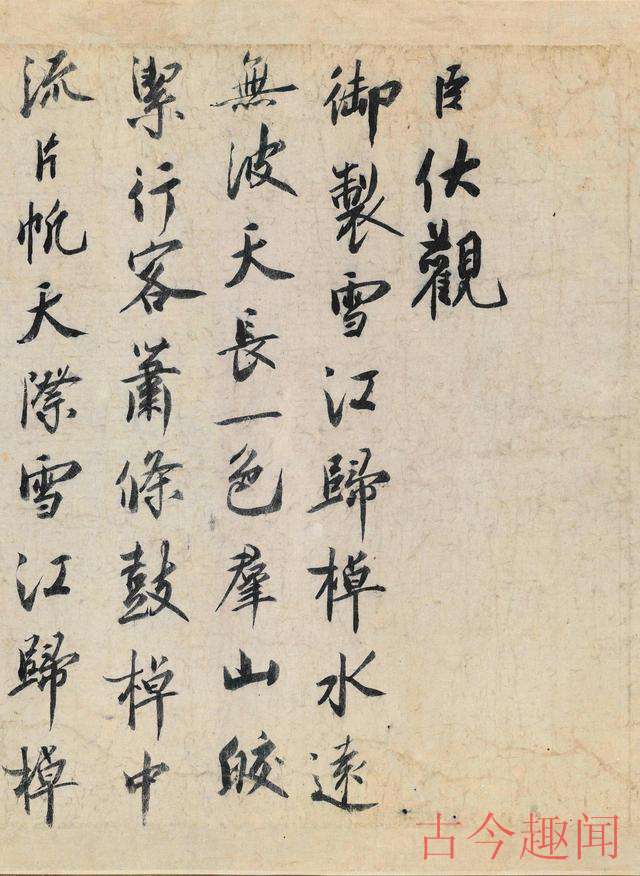 臣伏觀
御製雪江歸棹水遠
無波天長一色羣山皎
潔行客蕭條鼓棹中
流片帆天際雪江歸棹
古今趣闻